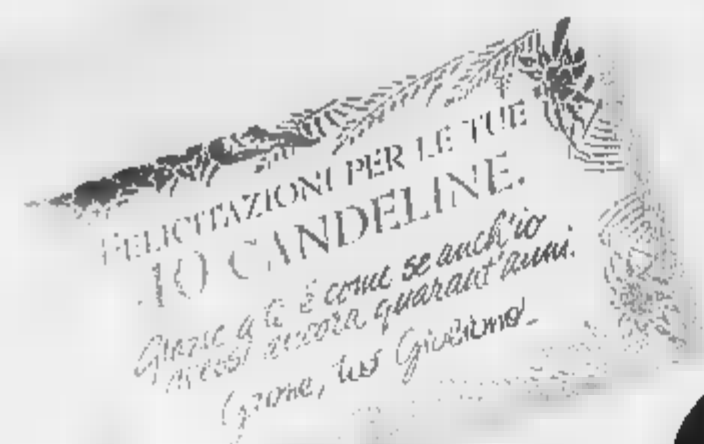 FELICITAZIONI PER LE TUE
40 CANDELINE.
Grazie a te è come se anch'io
avessi ancora quarant'anni.
tuo